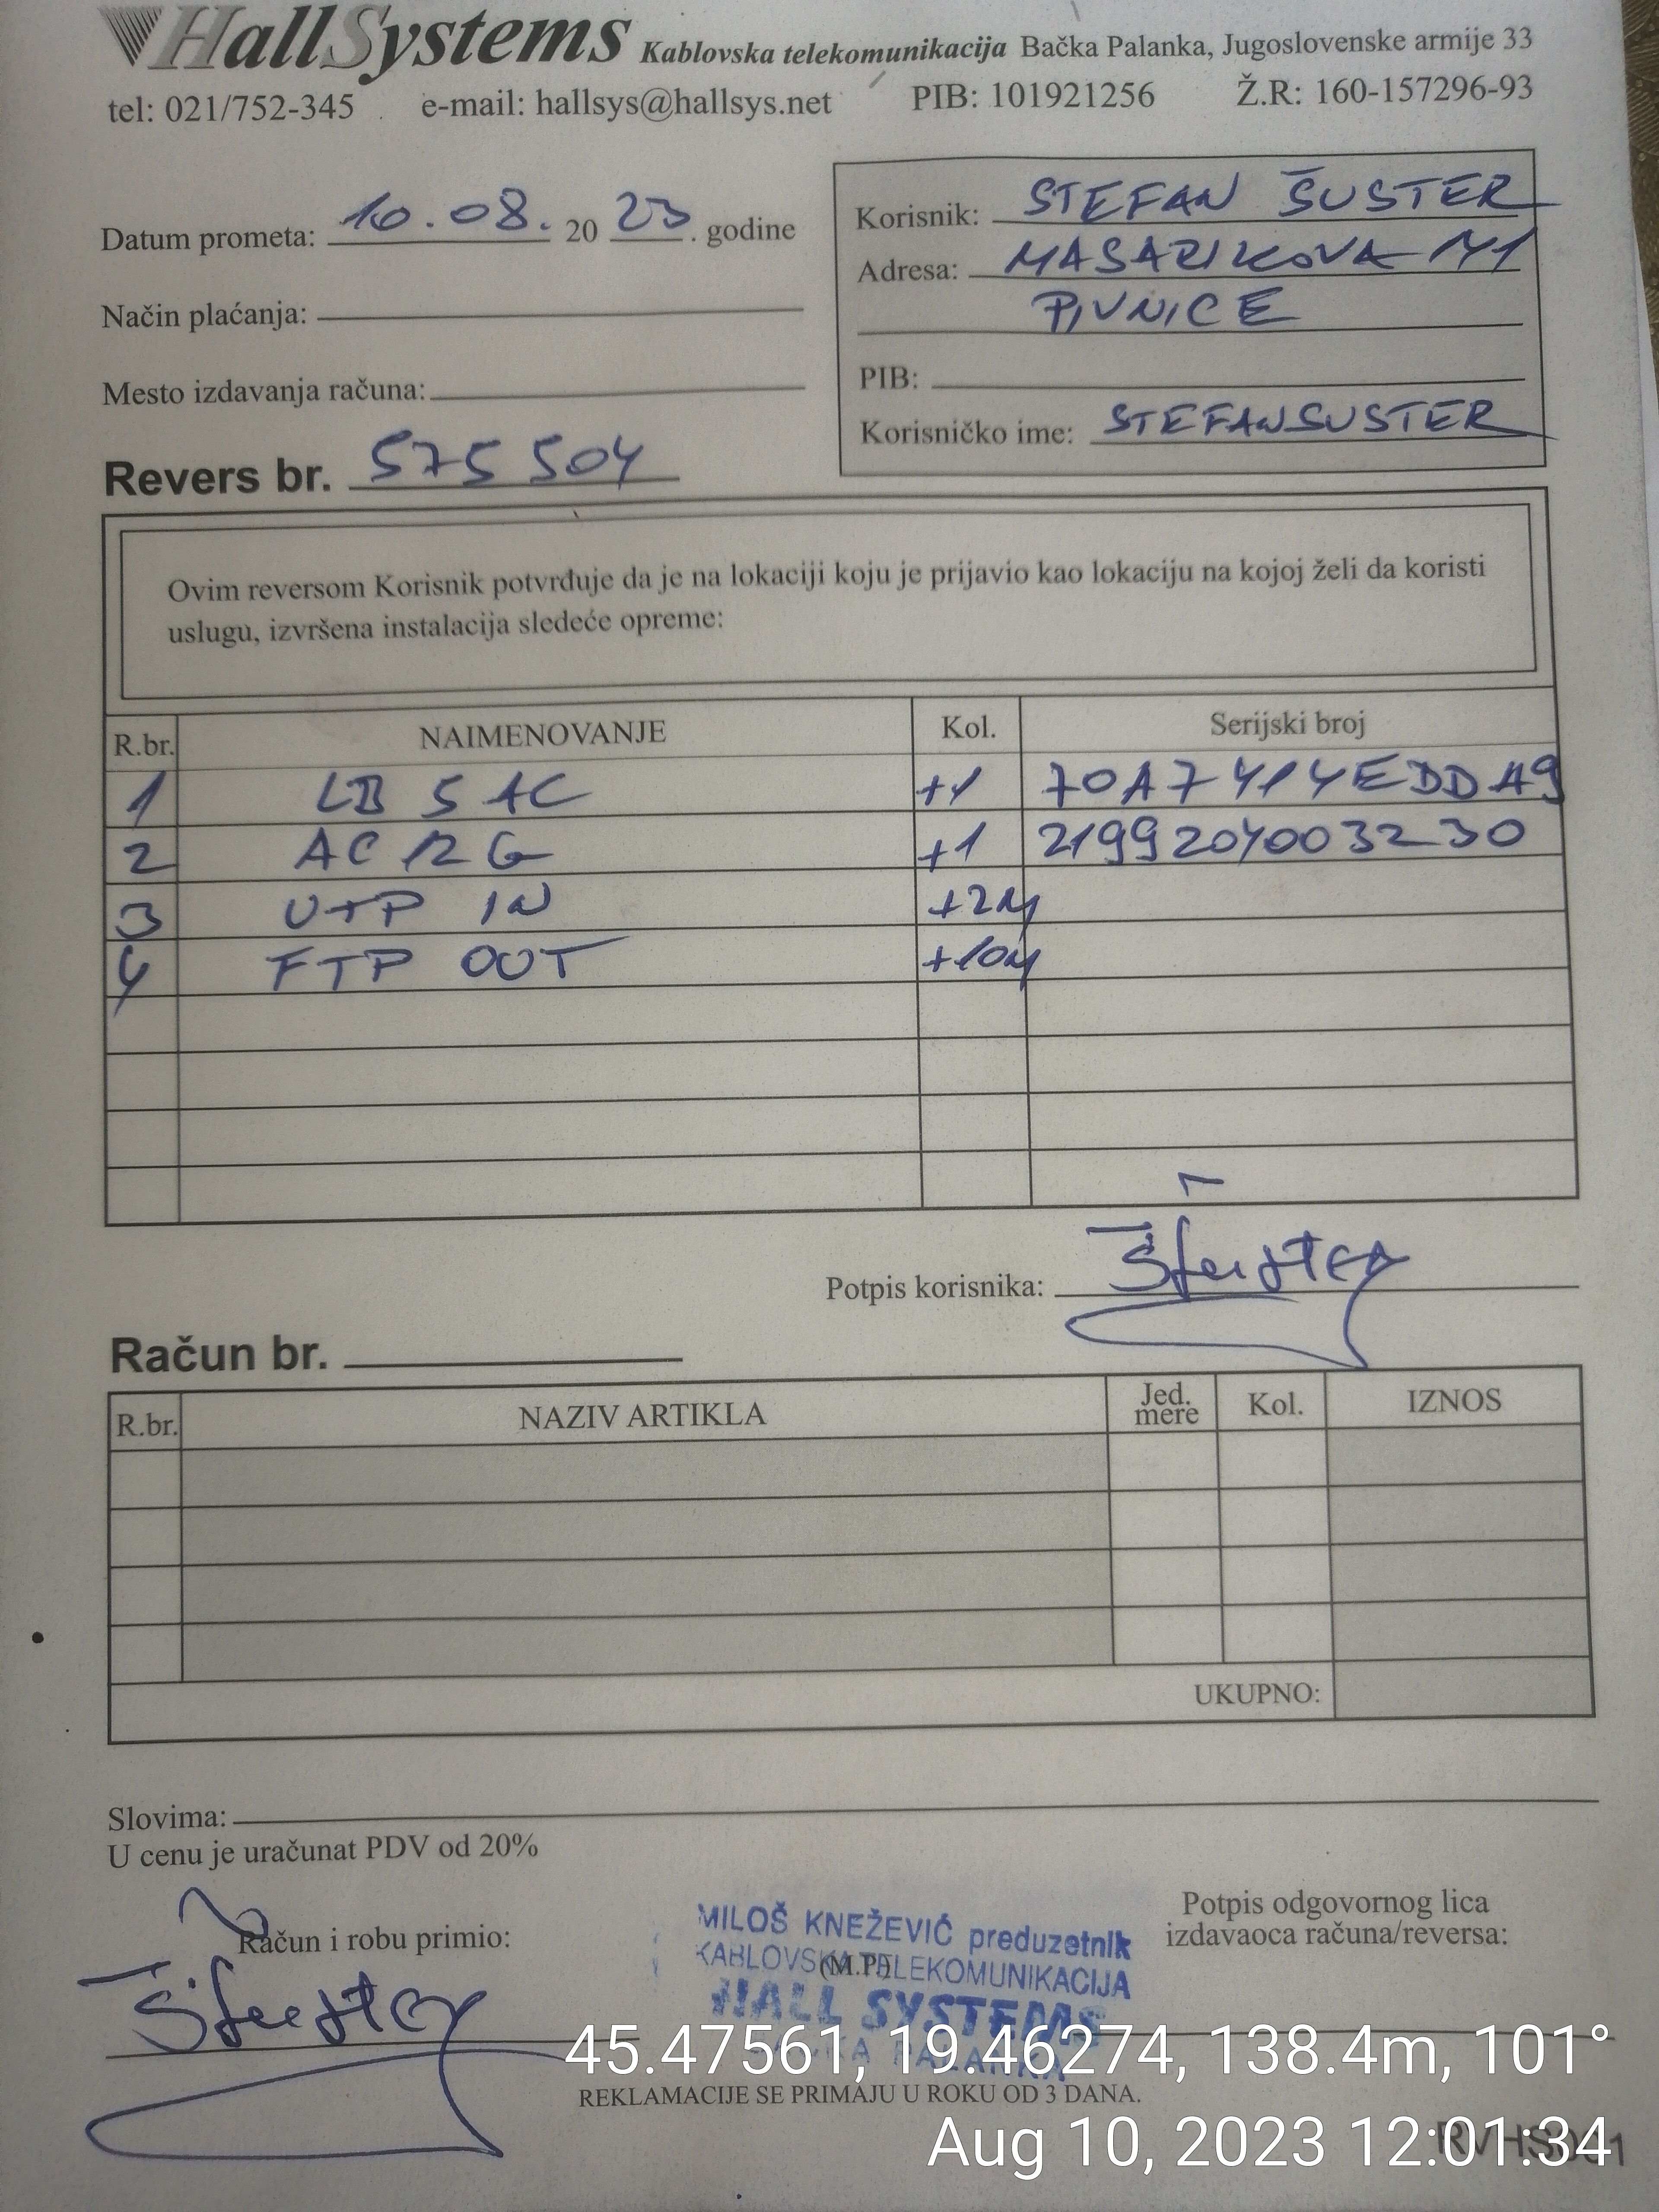 HallSystems Kablovska telekomunikacija Bačka Palanka, Jugoslovenske armije 33
tel: 021/752-345 e-mail: hallsys@hallsys.net PIB: 101921256 Ž.R: 160-157296-93
Datum prometa: 10.08. 20 23. godine
Način plaćanja:
Mesto izdavanja računa:
Revers br. 575504
Korisnik: STEFAN ŠUSTER
Adresa: MASARIKOVA 141
PIVNICE
PIB:
Korisničko ime: STEFANSUSTER
Ovim reversom Korisnik potvrđuje da je na lokaciji koju je prijavio kao lokaciju na kojoj želi da koristi
uslugu, izvršena instalacija sledeće opreme:
R.br. NAIMENOVANJE Kol. Serijski broj
1 LB 5 AC +1 70A7414EDDA9
2 AC 12 G +1 2199204003230
3 UTP IN +2M
4 FTP OUT +10M
Potpis korisnika: Šuster
Račun br.
R.br. NAZIV ARTIKLA Jed. mere Kol. IZNOS
UKUPNO:
Slovima:
U cenu je uračunat PDV od 20%
Račun i robu primio:
Šuster
MILOŠ KNEŽEVIĆ preduzetnik
KABLOVSKA TELEKOMUNIKACIJA
(M.P.)
HALL SYSTEMS
BAČKA PALANKA
Potpis odgovornog lica
izdavaoca računa/reversa:
45.47561, 19.46274, 138.4m, 101°
REKLAMACIJE SE PRIMAJU U ROKU OD 3 DANA.
Aug 10, 2023 12:01:34
RVHS001